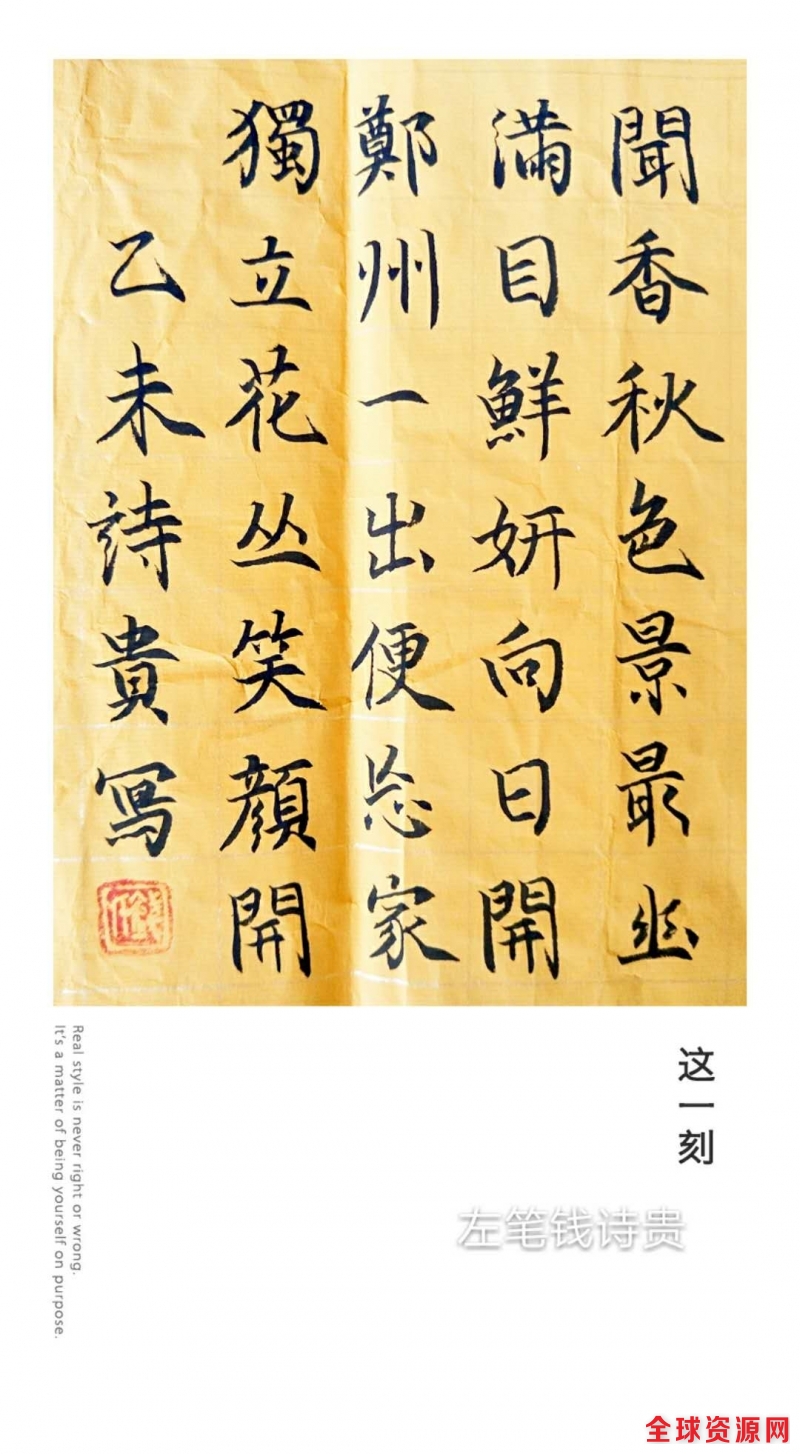 聞香秋色景最幽
滿目鮮妍向日開
鄭州一出便忘家
獨立花丛笑顏開
乙未詩貴寫
这一刻
左笔钱诗贵
Real style is never right or wrong.
It's a matter of being yourself on purpose.
全球资源网